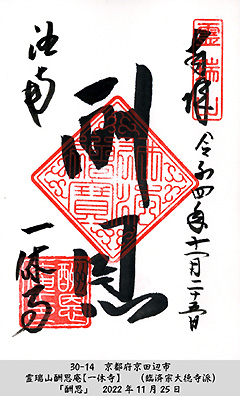 霊瑞山
奉拝
令和四年十一月二十五日
酬恩
佛法僧寶
洛南
一休寺
酬恩
30-14 京都府京田辺市
霊瑞山酬恩庵【一休寺】 （臨済宗大徳寺派）
「酬恩」 2022年11月25日